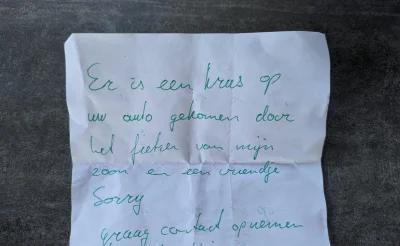 Er is een kras op
uw auto gekomen door
het fietsen van mijn
zoon en een vriendje
Sorry
graag contact opnemen